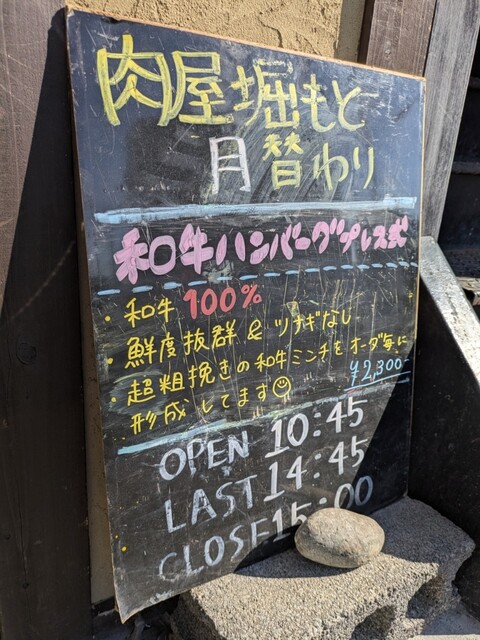 肉屋堀もと
月替わり
和牛ハンバーグプレス式
・和牛100%
・鮮度抜群&ツナギなし
・超粗挽きの和牛ミンチをオーダ毎に
形成してます☺
¥2,300
OPEN 10:45
LAST 14:45
CLOSE 15:00